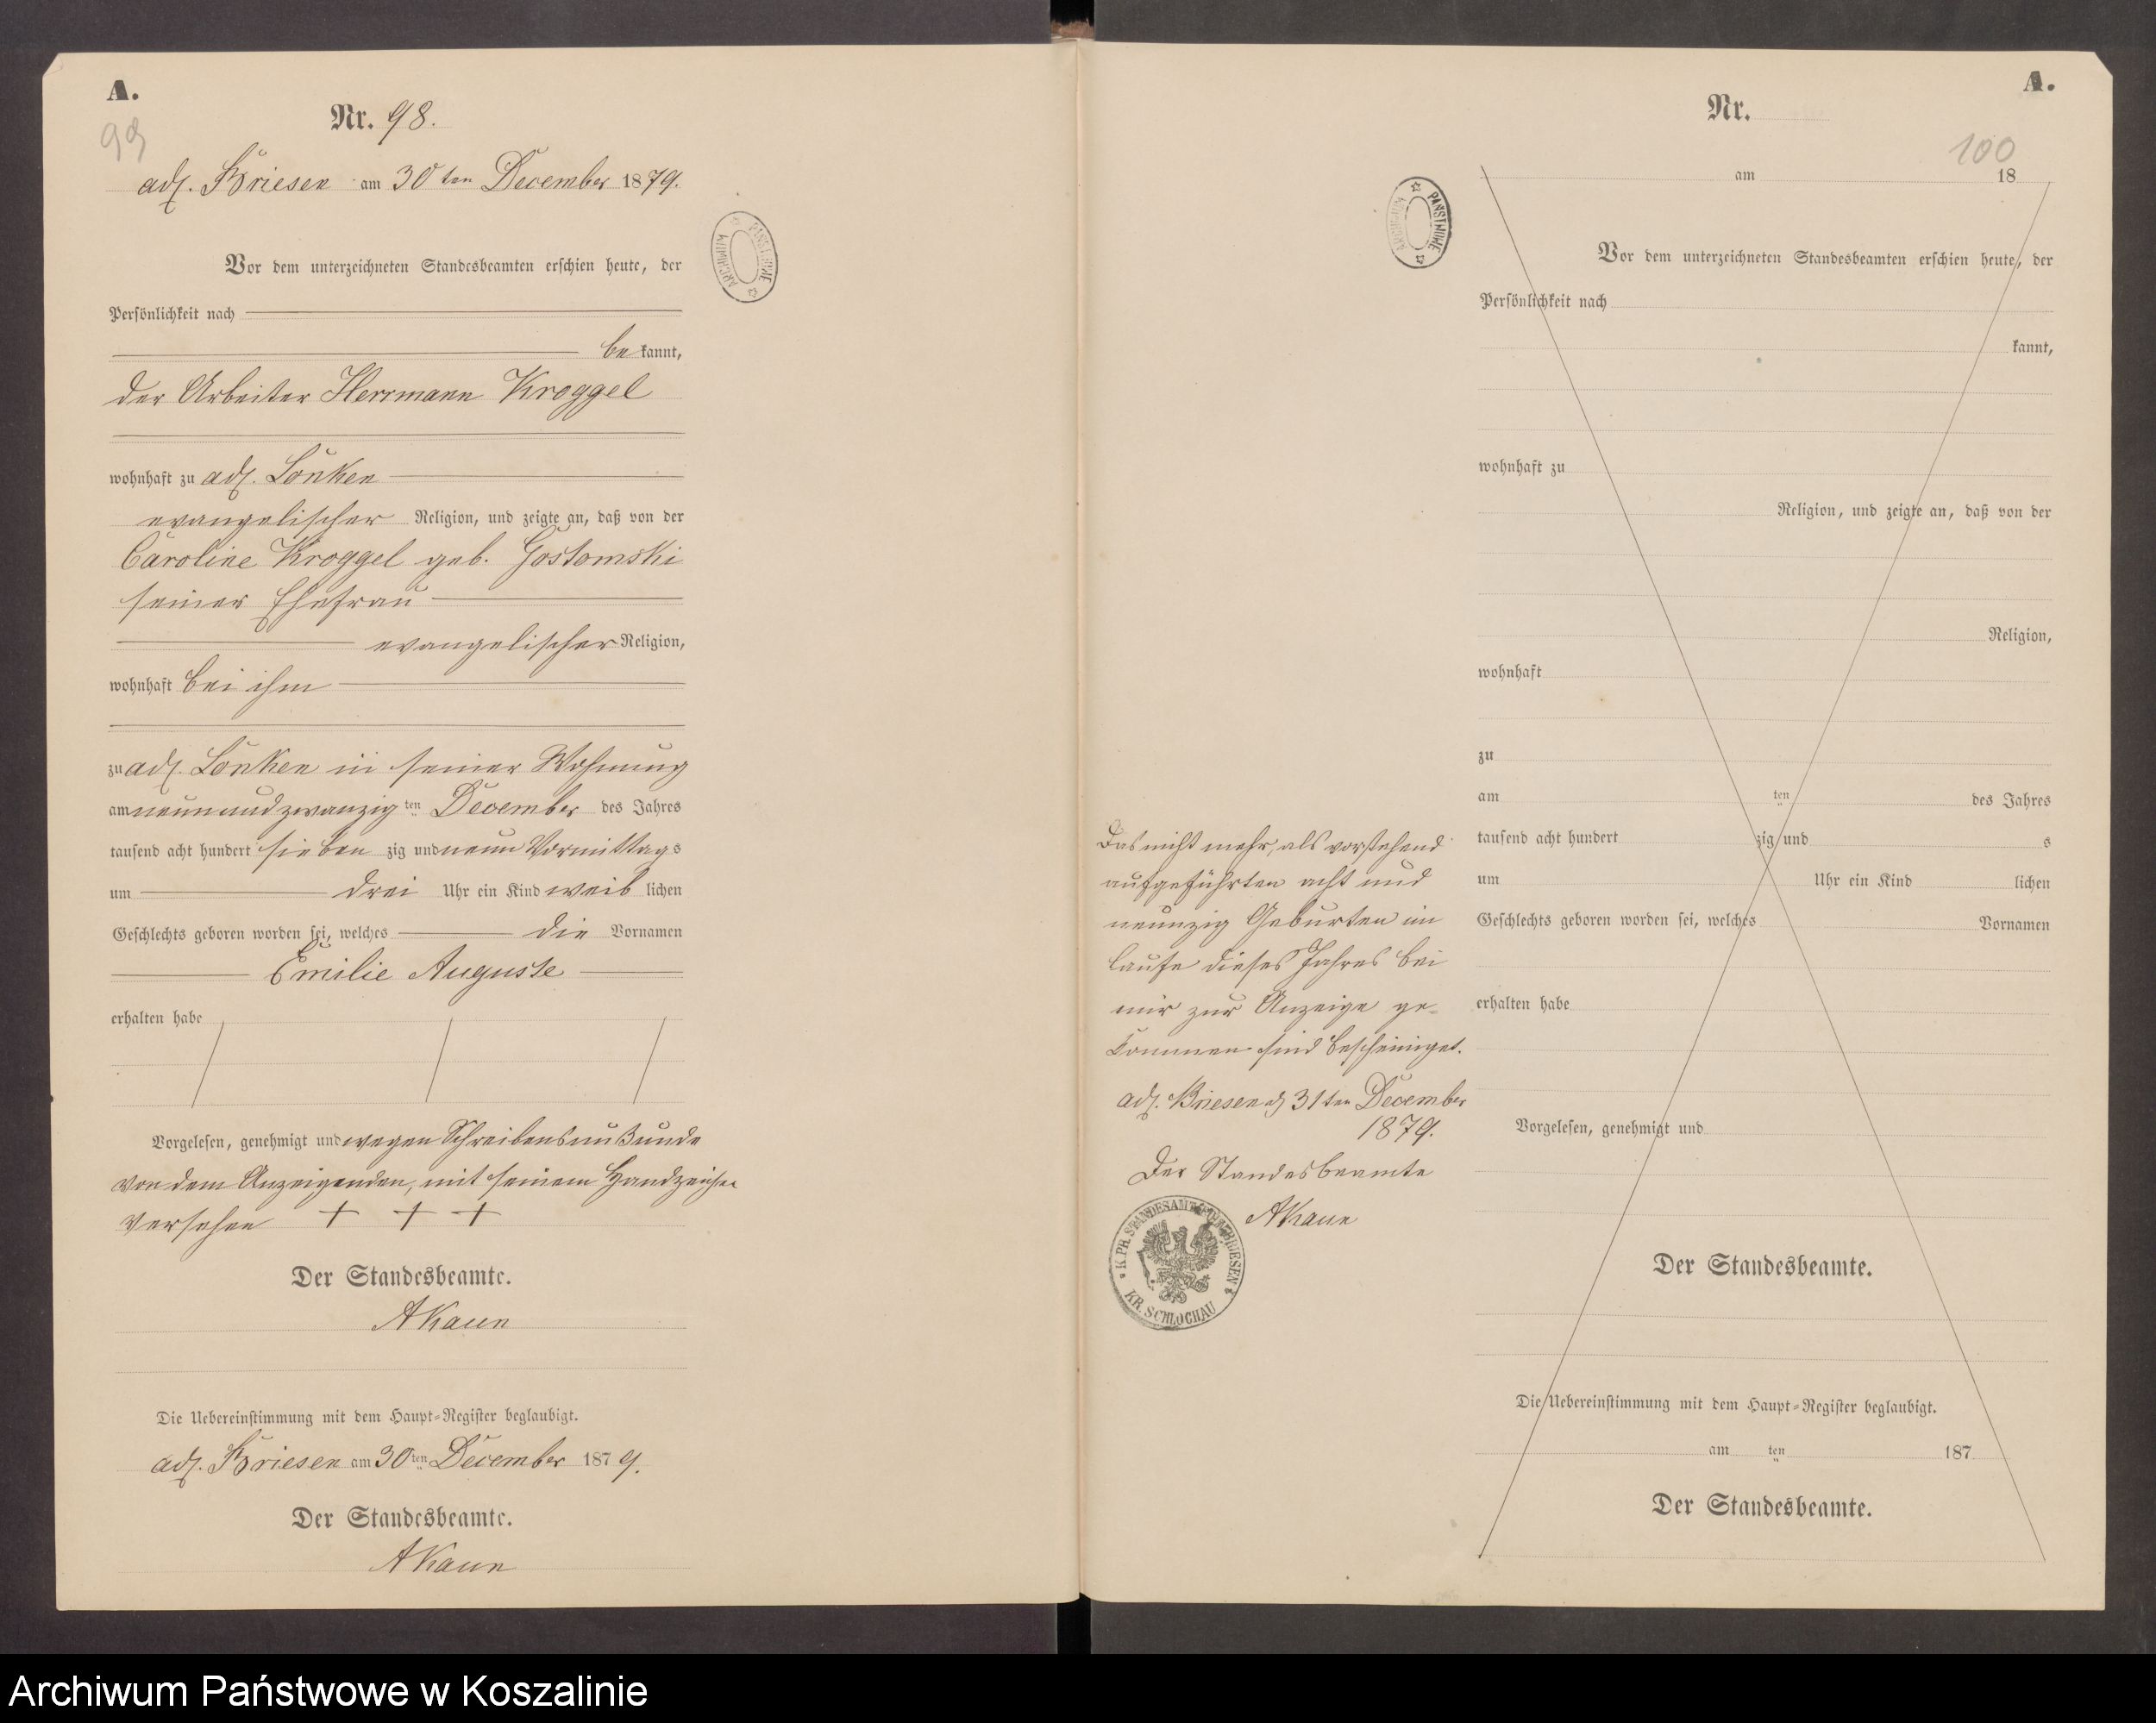 A.
99
Nr. 98.
adl. Briesen am 30ten December 1879.
Vor dem unterzeichneten Standesbeamten erschien heute, der
Persönlichkeit nach
be kannt,
der Arbeiter Herrmann Kroggel
wohnhaft zu adl. Lonken
evangelischer Religion, und zeigte an, daß von der
Caroline Kroggel geb. Gostomski
seiner Ehefrau
evangelischer Religion,
wohnhaft bei ihm
zu adl. Lonken in seiner Wohnung
am neun und zwanzig ten December des Jahres
tausend acht hundert sieben zig und neun Vormittags
um drei Uhr ein Kind weib lichen
Geschlechts geboren worden sei, welches die Vornamen
Emilie Auguste
erhalten habe
Vorgelesen, genehmigt und wegen Schreibens
von dem Anzeigenden, mit seinem Handzeichen
versehen + + +
Der Standesbeamte.
AKaun
Die Uebereinstimmung mit dem Haupt-Register beglaubigt.
adl. Briesen am 30ten December 1879.
Der Standesbeamte.
AKaun
PAŃSTWOWE ARCHIWUM
Das nicht mehr, als vorstehend
aufgeführten acht und
neunzig Geburten im
Laufe dieses Jahres bei
mir zur Anzeige ge-
kommen sind bescheiniget.
adl. Briesen d 31ten December
1879.
Der Standesbeamte
AKaun
K. PR. STANDESAMT BRIESEN
KR. SCHLOCHAU
A.
Nr.
100
am 18
PAŃSTWOWE ARCHIWUM
Vor dem unterzeichneten Standesbeamten erschien heute, der
Persönlichkeit nach
kannt,
wohnhaft zu
Religion, und zeigte an, daß von der
Religion,
wohnhaft
zu
am ten des Jahres
tausend acht hundert zig und s
um Uhr ein Kind lichen
Geschlechts geboren worden sei, welches Vornamen
erhalten habe
Vorgelesen, genehmigt und
Der Standesbeamte.
Die Uebereinstimmung mit dem Haupt-Register beglaubigt.
am ten 187
Der Standesbeamte.
Archiwum Państwowe w Koszalinie